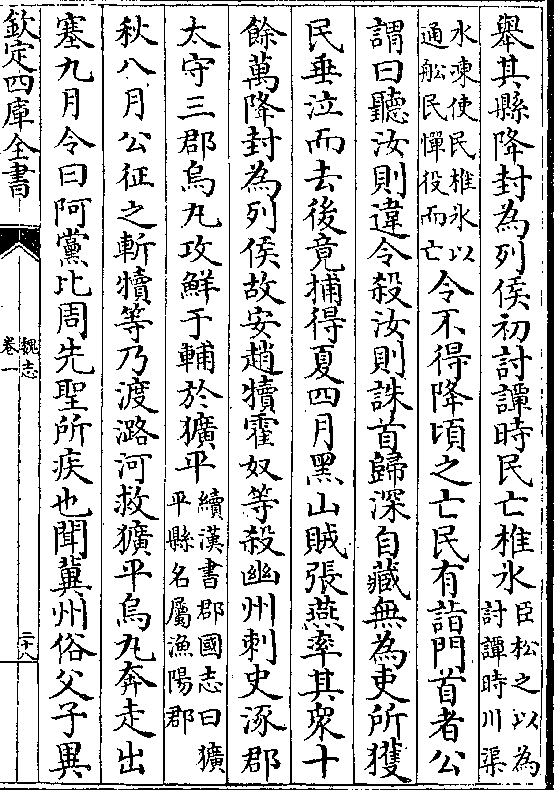 舉其縣降封為列侯初討譚時民亡椎氷臣松之以為討譚時川渠
水凍使民椎氷以通船民憚役而亡令不得降頃之亡民有詣門首者公
謂曰聽汝則違令殺汝則誅首歸深自藏無為吏所獲
民垂泣而去後竟捕得夏四月黑山賊張燕率其衆十
餘萬降封為列侯故安趙犢霍奴等殺幽州刺史涿郡
太守三郡烏丸攻鮮于輔於獷平續漢書郡國志曰獷平縣名屬漁陽郡
秋八月公征之斬犢等乃渡潞河救獷平烏丸奔走出
塞九月令曰阿黨比周先聖所疾也聞冀州俗父子異
欽定四庫全書
魏志
卷一
二十八